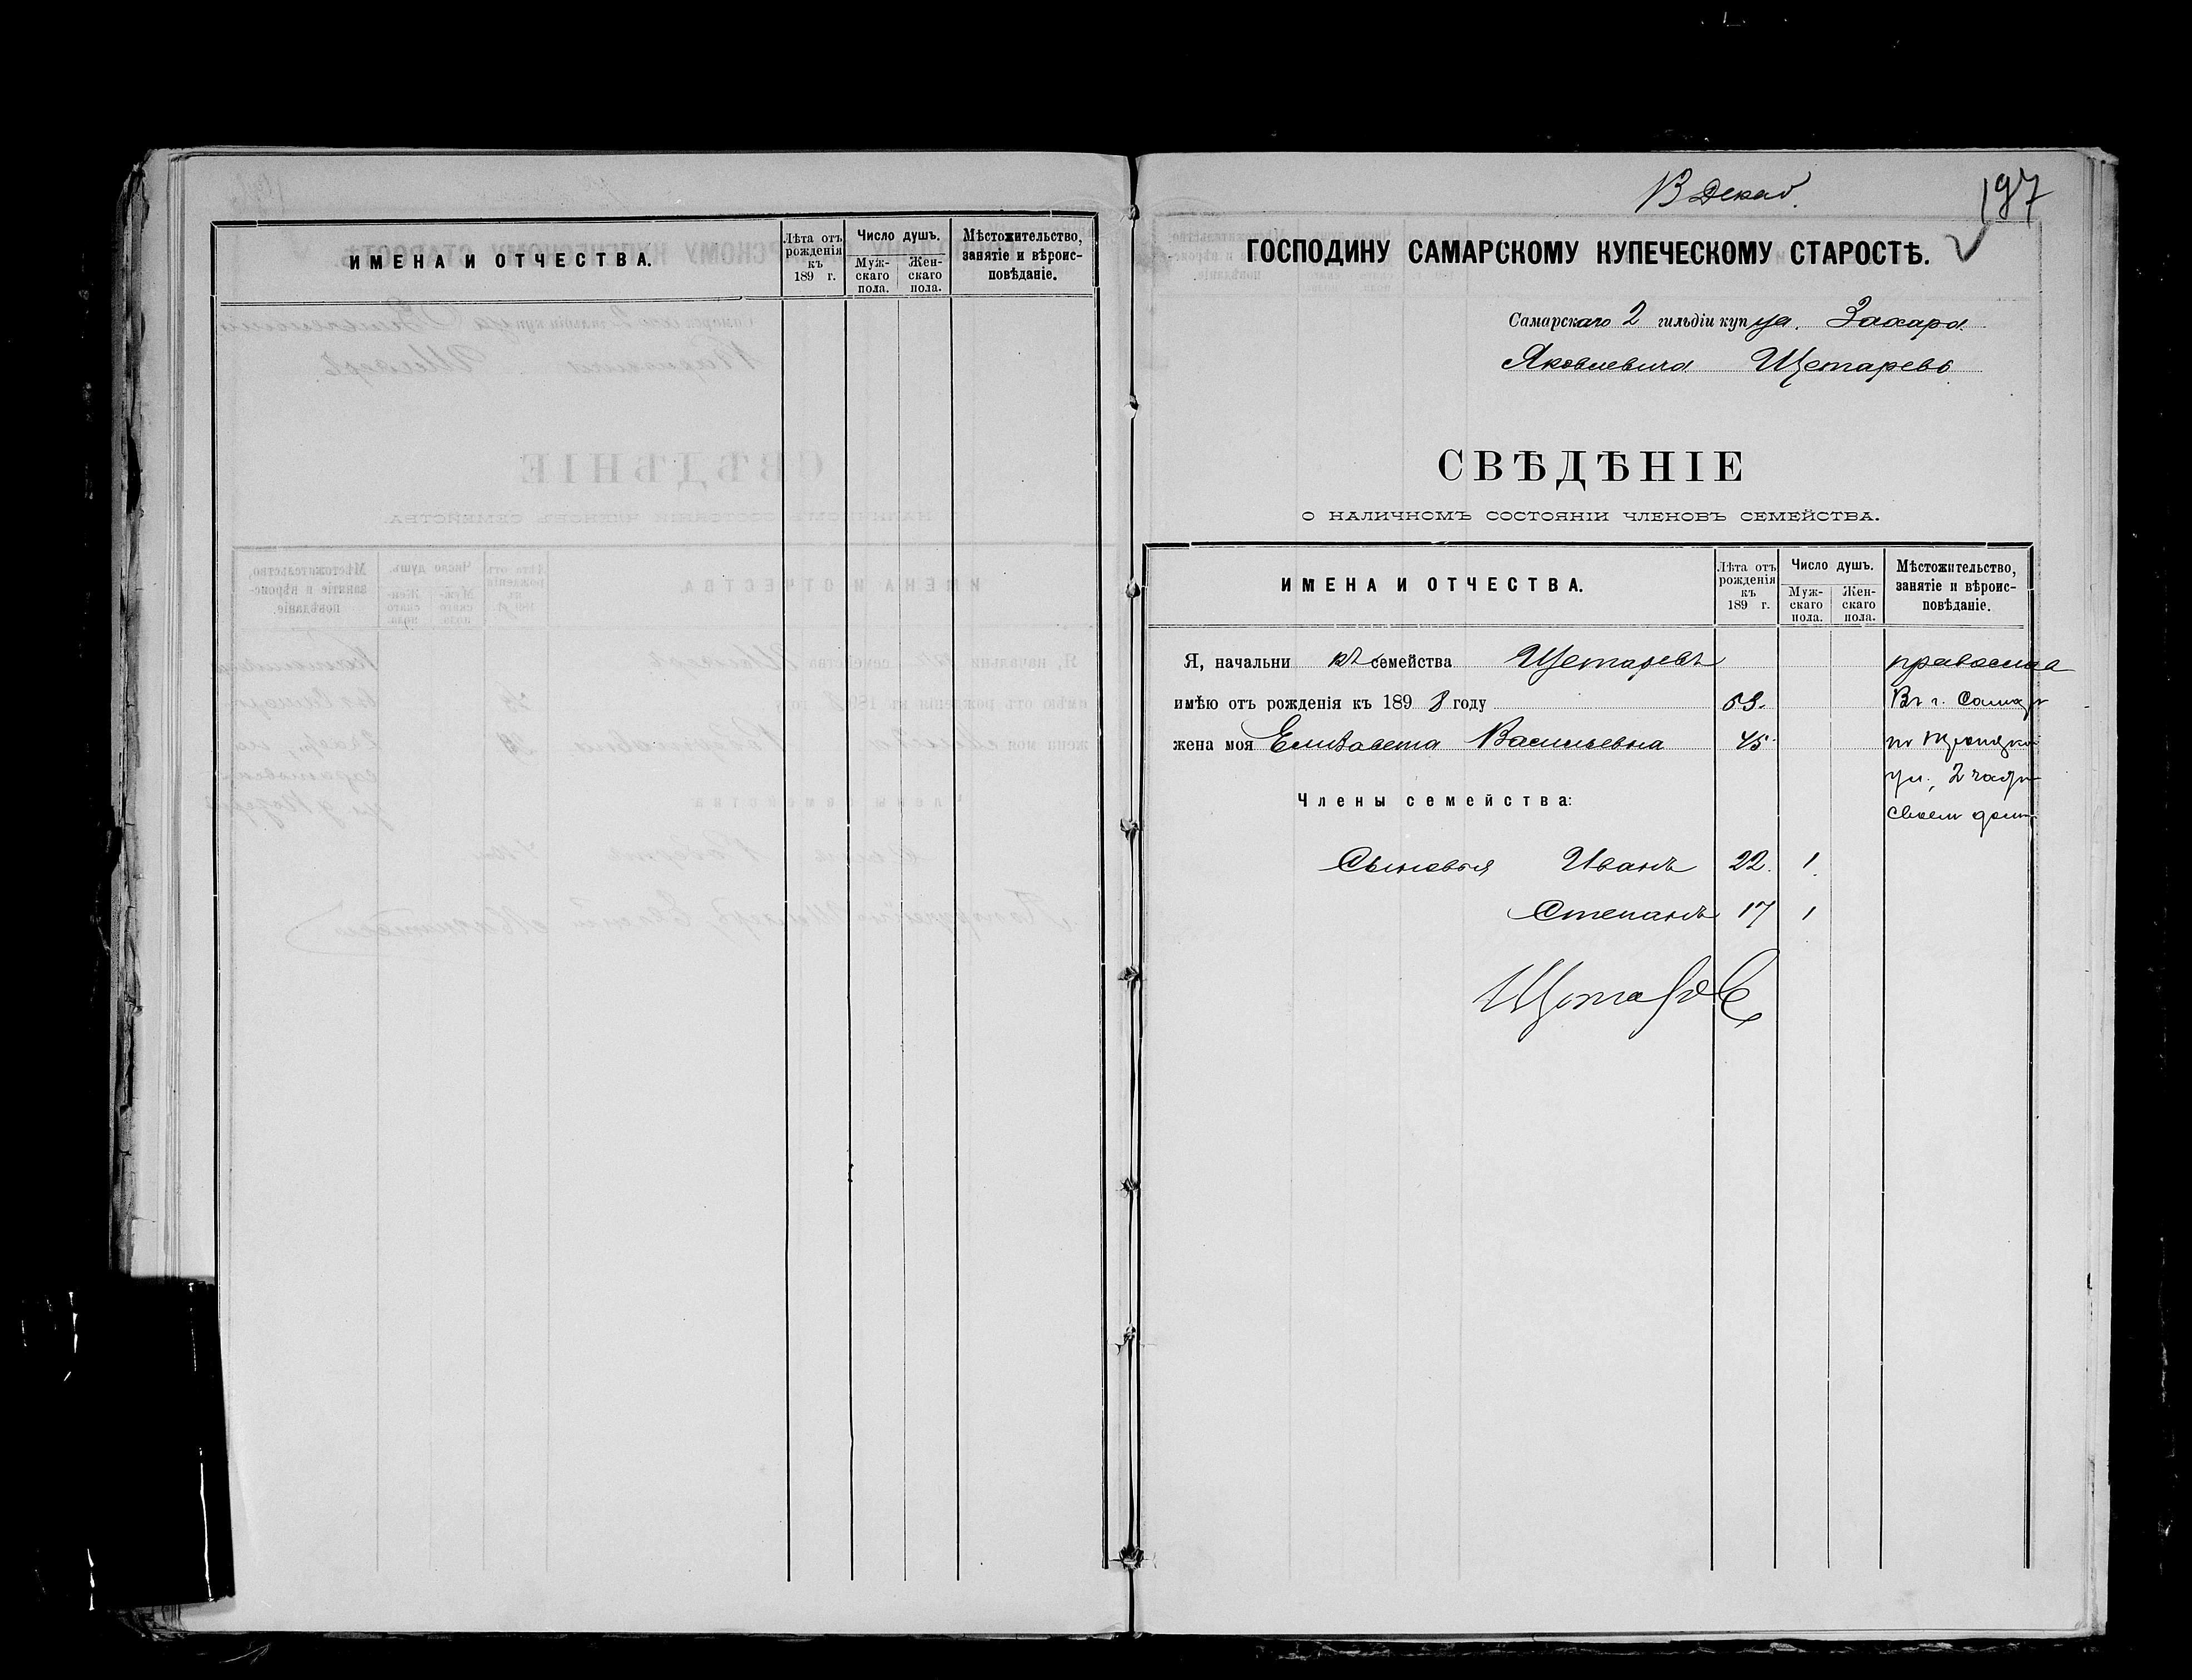 ИМЕНА И ОТЧЕСТВА.
Лѣта отъ рожденія къ 189 г.
Число душъ.
Муж-скаго пола.
Жен-скаго пола.
Мѣстожительство, занятіе и вѣроис-повѣданіе.
197
ГОСПОДИНУ САМАРСКОМУ КУПЕЧЕСКОМУ СТАРОСТѢ.
Самарскаго 2 гильдіи купца. Захара
Яковлевича Щетарева
СВѢДѢНІЕ
О НАЛИЧНОМЪ СОСТОЯНІИ ЧЛЕНОВЪ СЕМЕЙСТВА.
ИМЕНА И ОТЧЕСТВА.
Лѣта отъ рожденія къ 189 г.
Число душъ.
Муж-скаго пола.
Жен-скаго пола.
Мѣстожительство, занятіе и вѣроис-повѣданіе.
Я, начальникъ семейства Щетаревъ
имѣю отъ рожденія къ 1898 году 53.
Въ г. Самарѣ
жена моя Елизавета Васильевна 45
по Троицкой
ул. 2 части
своемъ домѣ
Члены семейства:
Сыновья Иванъ 22. 1
Степанъ 17 1
Щетаревъ